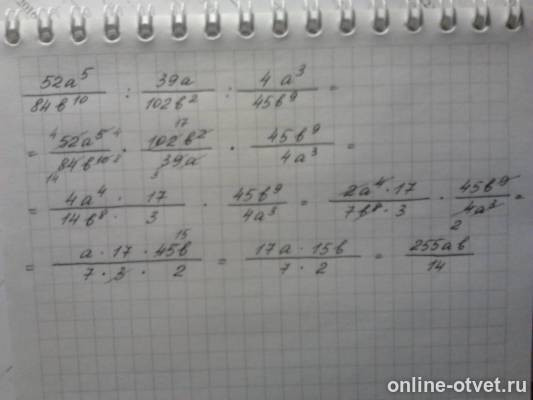 52a⁵/84b¹⁰ : 39a/102b² : 4a³/45b⁹ =
= 52a⁵/84b¹⁰ · 102b²/39a · 45b⁹/4a³ =
= 4a⁴ · 17/14b⁸ · 3 · 45b⁹/4a³ = 2a⁴ · 17/7b⁸ · 3 · 45b⁹/4a³ =
= a · 17 · 45b/7 · 3 · 2 = 17a · 15b/7 · 2 = 255ab/14
online-otvet.ru